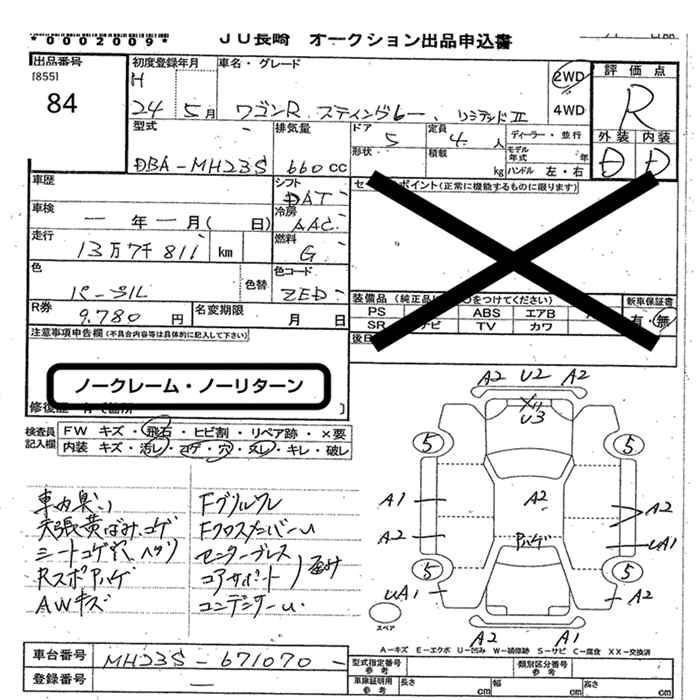 *0002009*
JU長崎 オークション出品申込書
出品番号 [855] 84
初度登録年月 H 24年 5月
車名・グレード ワゴンR スティングレー、リミテッドII
2WD 4WD
評価点 R
外装 D 内装 D
型式 DBA-MH23S
排気量 660cc
ドア 5 定員 4人 ディーラー・並行
形状 積載 kg モデル年式 年 ハンドル 左・右
車歴
シフト DAT
セールスポイント(正常に機能するものに限ります)
車検 ー年ー月( 日)
冷房 AAC
走行 13万7千811 km
燃料 G
色 パープル 色替
色コード ZED
R券 9,780円
名変期限 月 日
装備品(純正品に○をつけてください) 新車保証書
PS ABS エアB
SR ナビ TV カワ
有・無
注意事項申告欄(不具合内容等は具体的に記入して下さい)
ノークレーム・ノーリターン
修復歴
検査員記入欄
FW キズ・飛石・ヒビ割・リペア跡・×要
内装 キズ・汚レ・コゲ・穴・スレ・キレ・破レ
車内臭い
天張黄ばみ、コゲ
シートコゲ穴、ヘタリ
Rスポハゲ
AWキズ
Fグリルワレ
FクロスメンバーU
センターブレス
コアサポート
コンデンサーU
A2 U2 A2
U3
5 5
A1 A2 A2
A2 ハゲ UA1
5 5
UA1 A2
スペア
A2 A1
A-キズ E-エクボ U-凹み W-補修跡 S-サビ C-腐食 XX-交換済
車台番号 MH23S-671070-
登録番号 ー
型式指定番号 参考 類別区分番号 参考
車庫証明用 参考 長さ cm 幅 cm 高さ cm